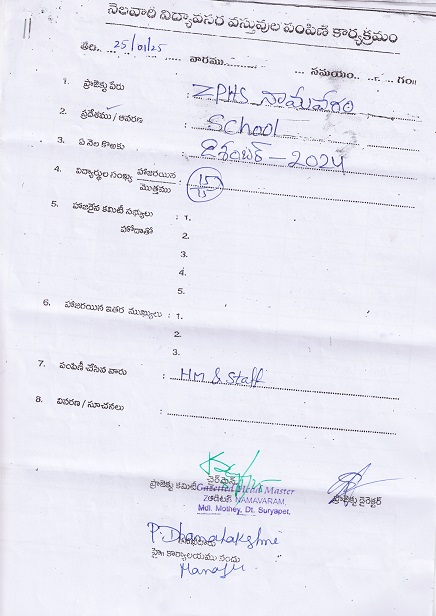 నెలవారీ విద్యావసర వస్తువుల పంపిణీ కార్యక్రమం
తేది.. 25/01/25 వారము......... ... సమయం........ గం॥
1. ప్రాజెక్టు పేరు : ZPHS నామవరం
2. ప్రదేశము / ఆవరణ : School
3. ఏ నెల కొఱకు : డిశంబర్ - 2024
4. విద్యార్థుల సంఖ్య హాజరయిన / మొత్తము : 15/15
5. హాజరైన కమిటీ సభ్యులు : 1.
హోదాతో 2.
3.
4.
5.
6. హాజరయిన ఇతర ముఖ్యులు : 1.
2.
3.
7. పంపిణీ చేసిన వారు : HM & Staff
8. వివరణ / సూచనలు :
చైర్మన్
ప్రాజెక్టు కమిటీ Gazetted Head Master
NAMAVARAM,
Mdl. Mothey, Dt. Suryapet.
ప్రాజెక్టు డైరెక్టర్
P. Dhanalakshmi
హై కార్యాలయము నందు
Manager